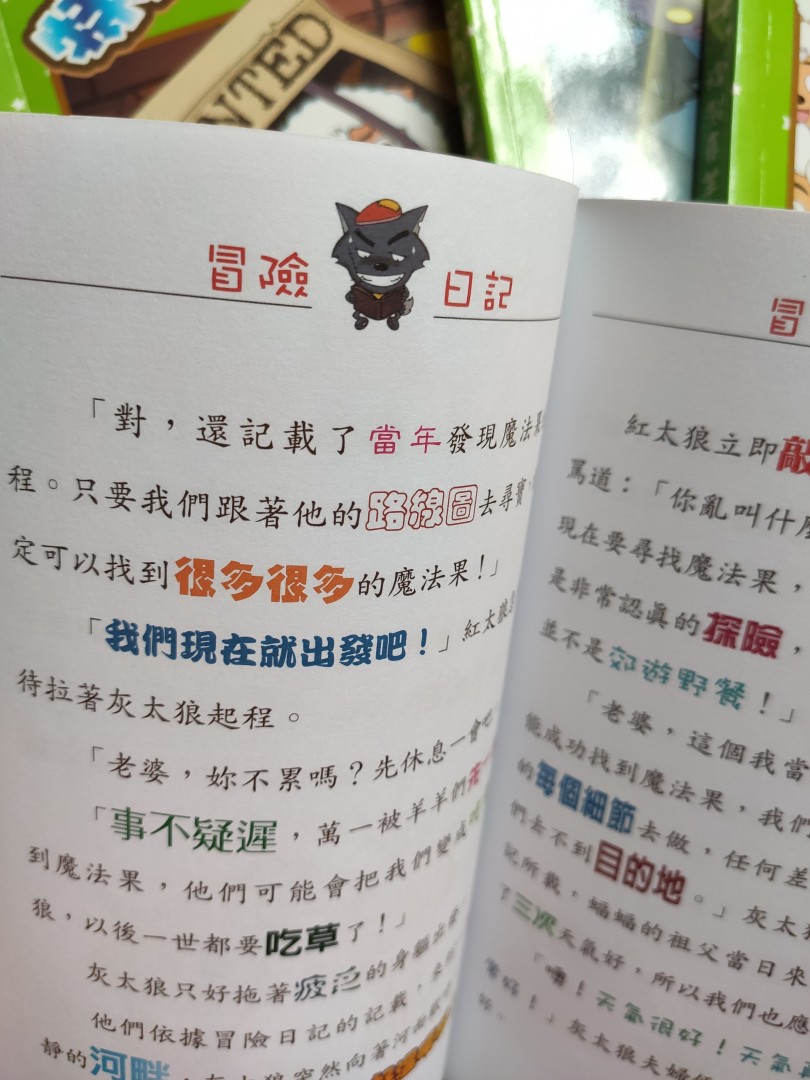 NTED
冒險 日記
「對，還記載了當年發現魔法果
程。只要我們跟著他的路線圖去尋寶，
定可以找到很多很多的魔法果！」
「我們現在就出發吧！」紅太狼
待拉著灰太狼起程。
「老婆，妳不累嗎？先休息一會吧
「事不疑遲，萬一被羊羊們
到魔法果，他們可能會把我們變成
狼，以後一世都要吃草了！」
灰太狼只好拖著疲乏的身軀出發
他們依據冒險日記的記載，來到
靜的河畔，灰太狼突然向著河面
冒
紅太狼立即敲
罵道：「你亂叫什麼
現在要尋找魔法果，
是非常認真的探險，
並不是郊遊野餐！」
「老婆，這個我當
能成功找到魔法果，我們
的每個細節去做，任何差
們去不到目的地。」灰太狼
記所載，蝙蝠的祖父當日來
了三次天氣好，所以我們也應
「嘩！天氣很好！天氣
常好！」灰太狼夫婦